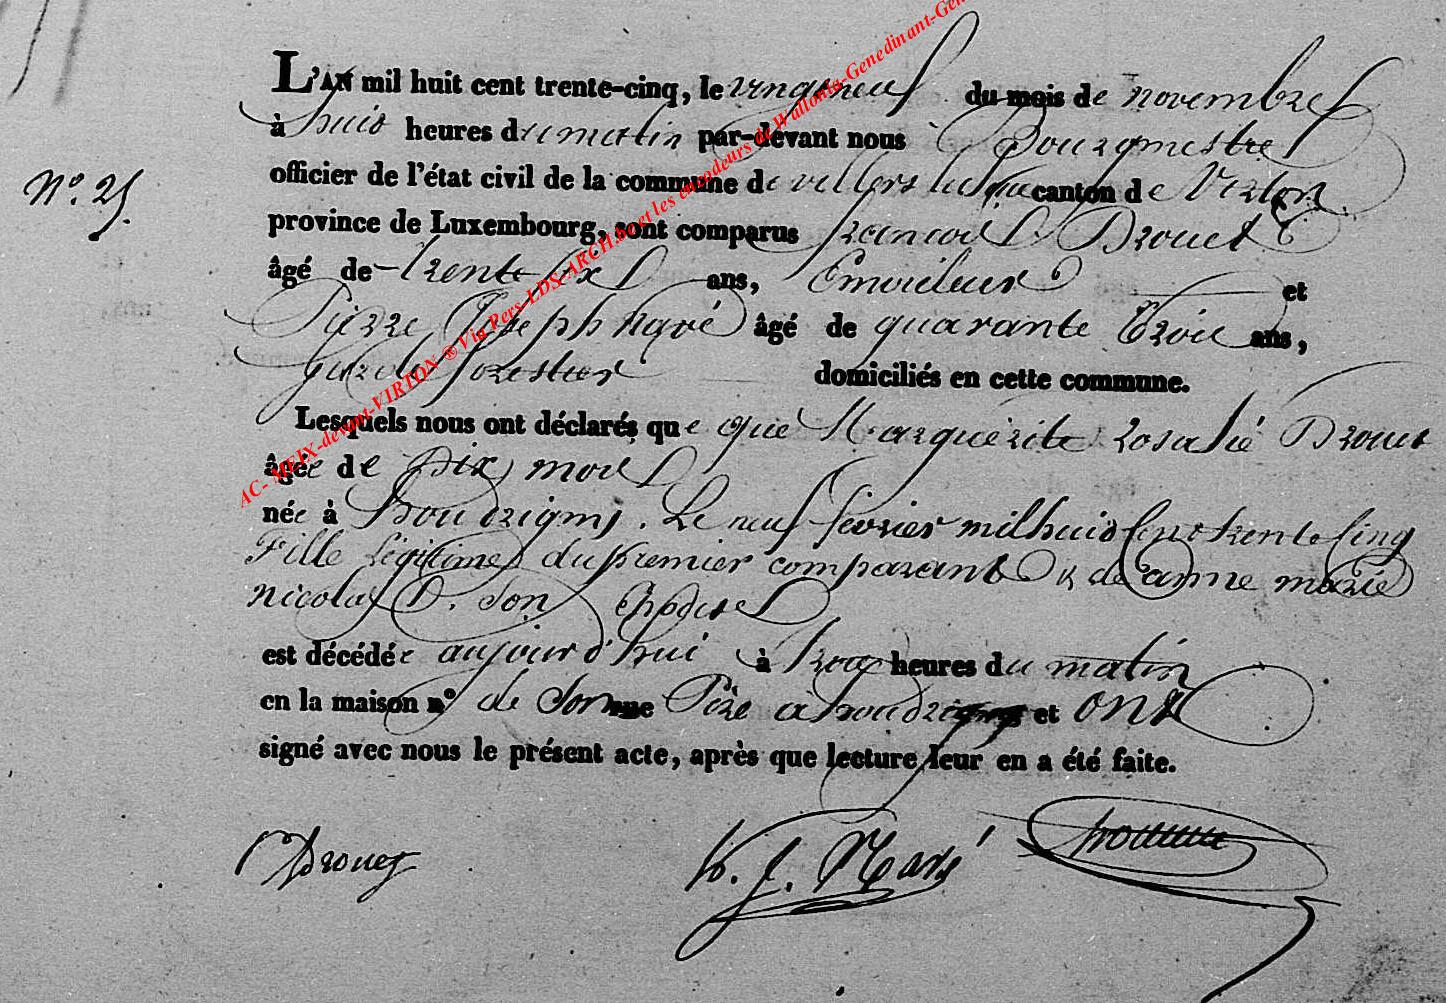 L'AN mil huit cent trente-cinq, le vingtneuf du mois de novembre
à huit heures du matin par-devant nous Bourgmestre
officier de l'état civil de la commune de villers la canton de Virton
province de Luxembourg, sont comparus françois Drouet
N.° 25.
âgé de trente six ans, Emouleur et
Pierre Joseph Maré âgé de quarante trois ans,
Garde forestier domiciliés en cette commune.
Lesquels nous ont déclarés que que Marguerite rosalie Drouet
âgée de Dix mois
née à houdrigny. Le neuf février mil huit Cent trente Cinq
Fille Légitime du premier comparant & de anne marie
nicolas. Son Epouse
est décédée aujourd'hui à heures du matin
en la maison n° de Son rue Père a houdrigny et ont
signé avec nous le présent acte, après que lecture leur en a été faite.
Drouet P. J. Maré
AC- MEIX-devant-VIRTON ® Via Pers-LDS-ARCH.be et les encodeurs de Wallonia-Genedinant-Gen